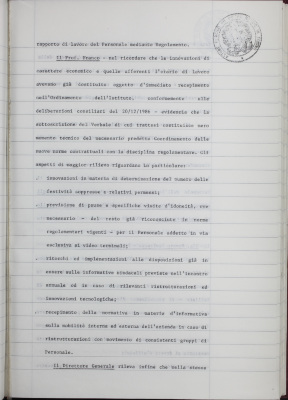 rapporto di lavoro del Personale mediante Regolamento.
Il Prof. Franco - nel ricordare che le innovazioni di
carattere economico e quelle afferenti l'orario di lavoro
avevano già costituito oggetto d'immediato recepimento
nell'Ordinamento dell'Istituto, conformemente alle
deliberazioni consiliari del 20/12/1986 - evidenzia che la
sottoscrizione del Verbale di cui trattasi costituisce mero
momento tecnico del necessario predetto Coordinamento delle
nuove norme contrattuali con la disciplina regolamentare. Gli
aspetti di maggior rilievo riguardano in particolare:
innovazioni in materia di determinazione del numero delle
festività soppresse e relativi permessi;
previsione di pause e specifiche visite d'idoneità, ove
necessario - del resto già riconosciute in norme
regolamentari vigenti - per il Personale addetto in via
esclusiva ai video terminali;
ritocchi ed implementazioni alle disposizioni già in
essere sulle informative sindacali previste nell'incontro
annuale ed in caso di rilevanti ristrutturazioni ed
innovazioni tecnologiche;
recepimento della normativa in materia d'informativa
sulla mobilità interna ed esterna dell'azienda in caso di
ristrutturazioni con movimento di consistenti gruppi di
Personale.
Il Direttore Generale rileva infine che nella stessa